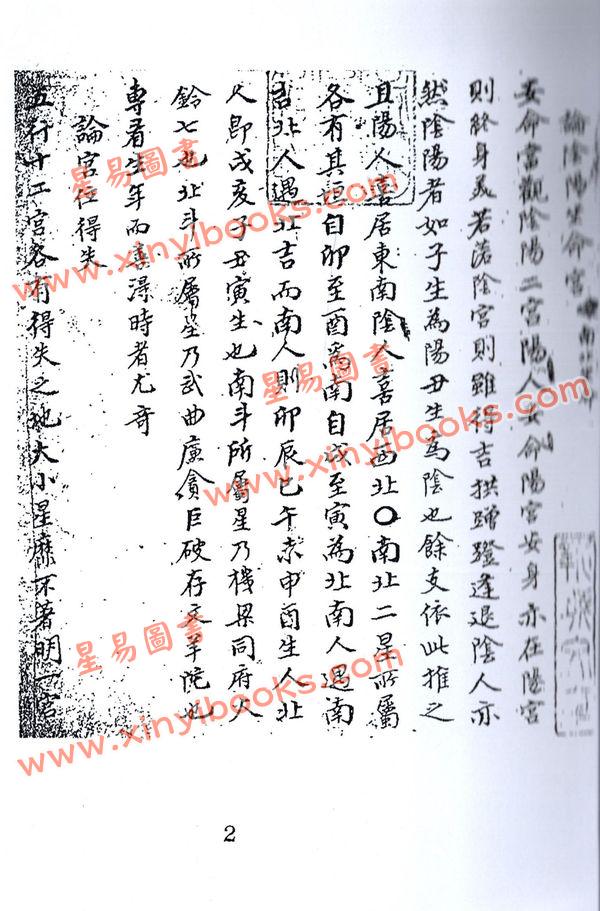 論陰陽安命宮
安命當觀陰陽二宮陽人安命陽宮安身亦在陽宮
則終身美若落陰宮則雖得吉拱蹭蹬逢退陰人亦
然陰陽者如子生為陽丑生為陰也餘支依此推之
且陽人喜居東南陰人喜居西北〇南北二星所屬
各有其垣自卯至酉為南自戌至寅為北南人遇南
吉北人遇北吉而南人則卯辰巳午未申酉生人北
人即戌亥子丑寅生也南斗所屬星乃機梁同府火
鈴七也北斗所屬星乃武曲廉貪巨破存羊陀也
專看生年而得時者尤奇
論宮位得失
五行十二宮各有得失之地大小星靡不著明一宮
2
星易圖書
www.xinyibooks.com
星易圖書
www.xinyibooks.com
星易圖書
www.xinyibooks.com
星易圖書
www.xinyibooks.com